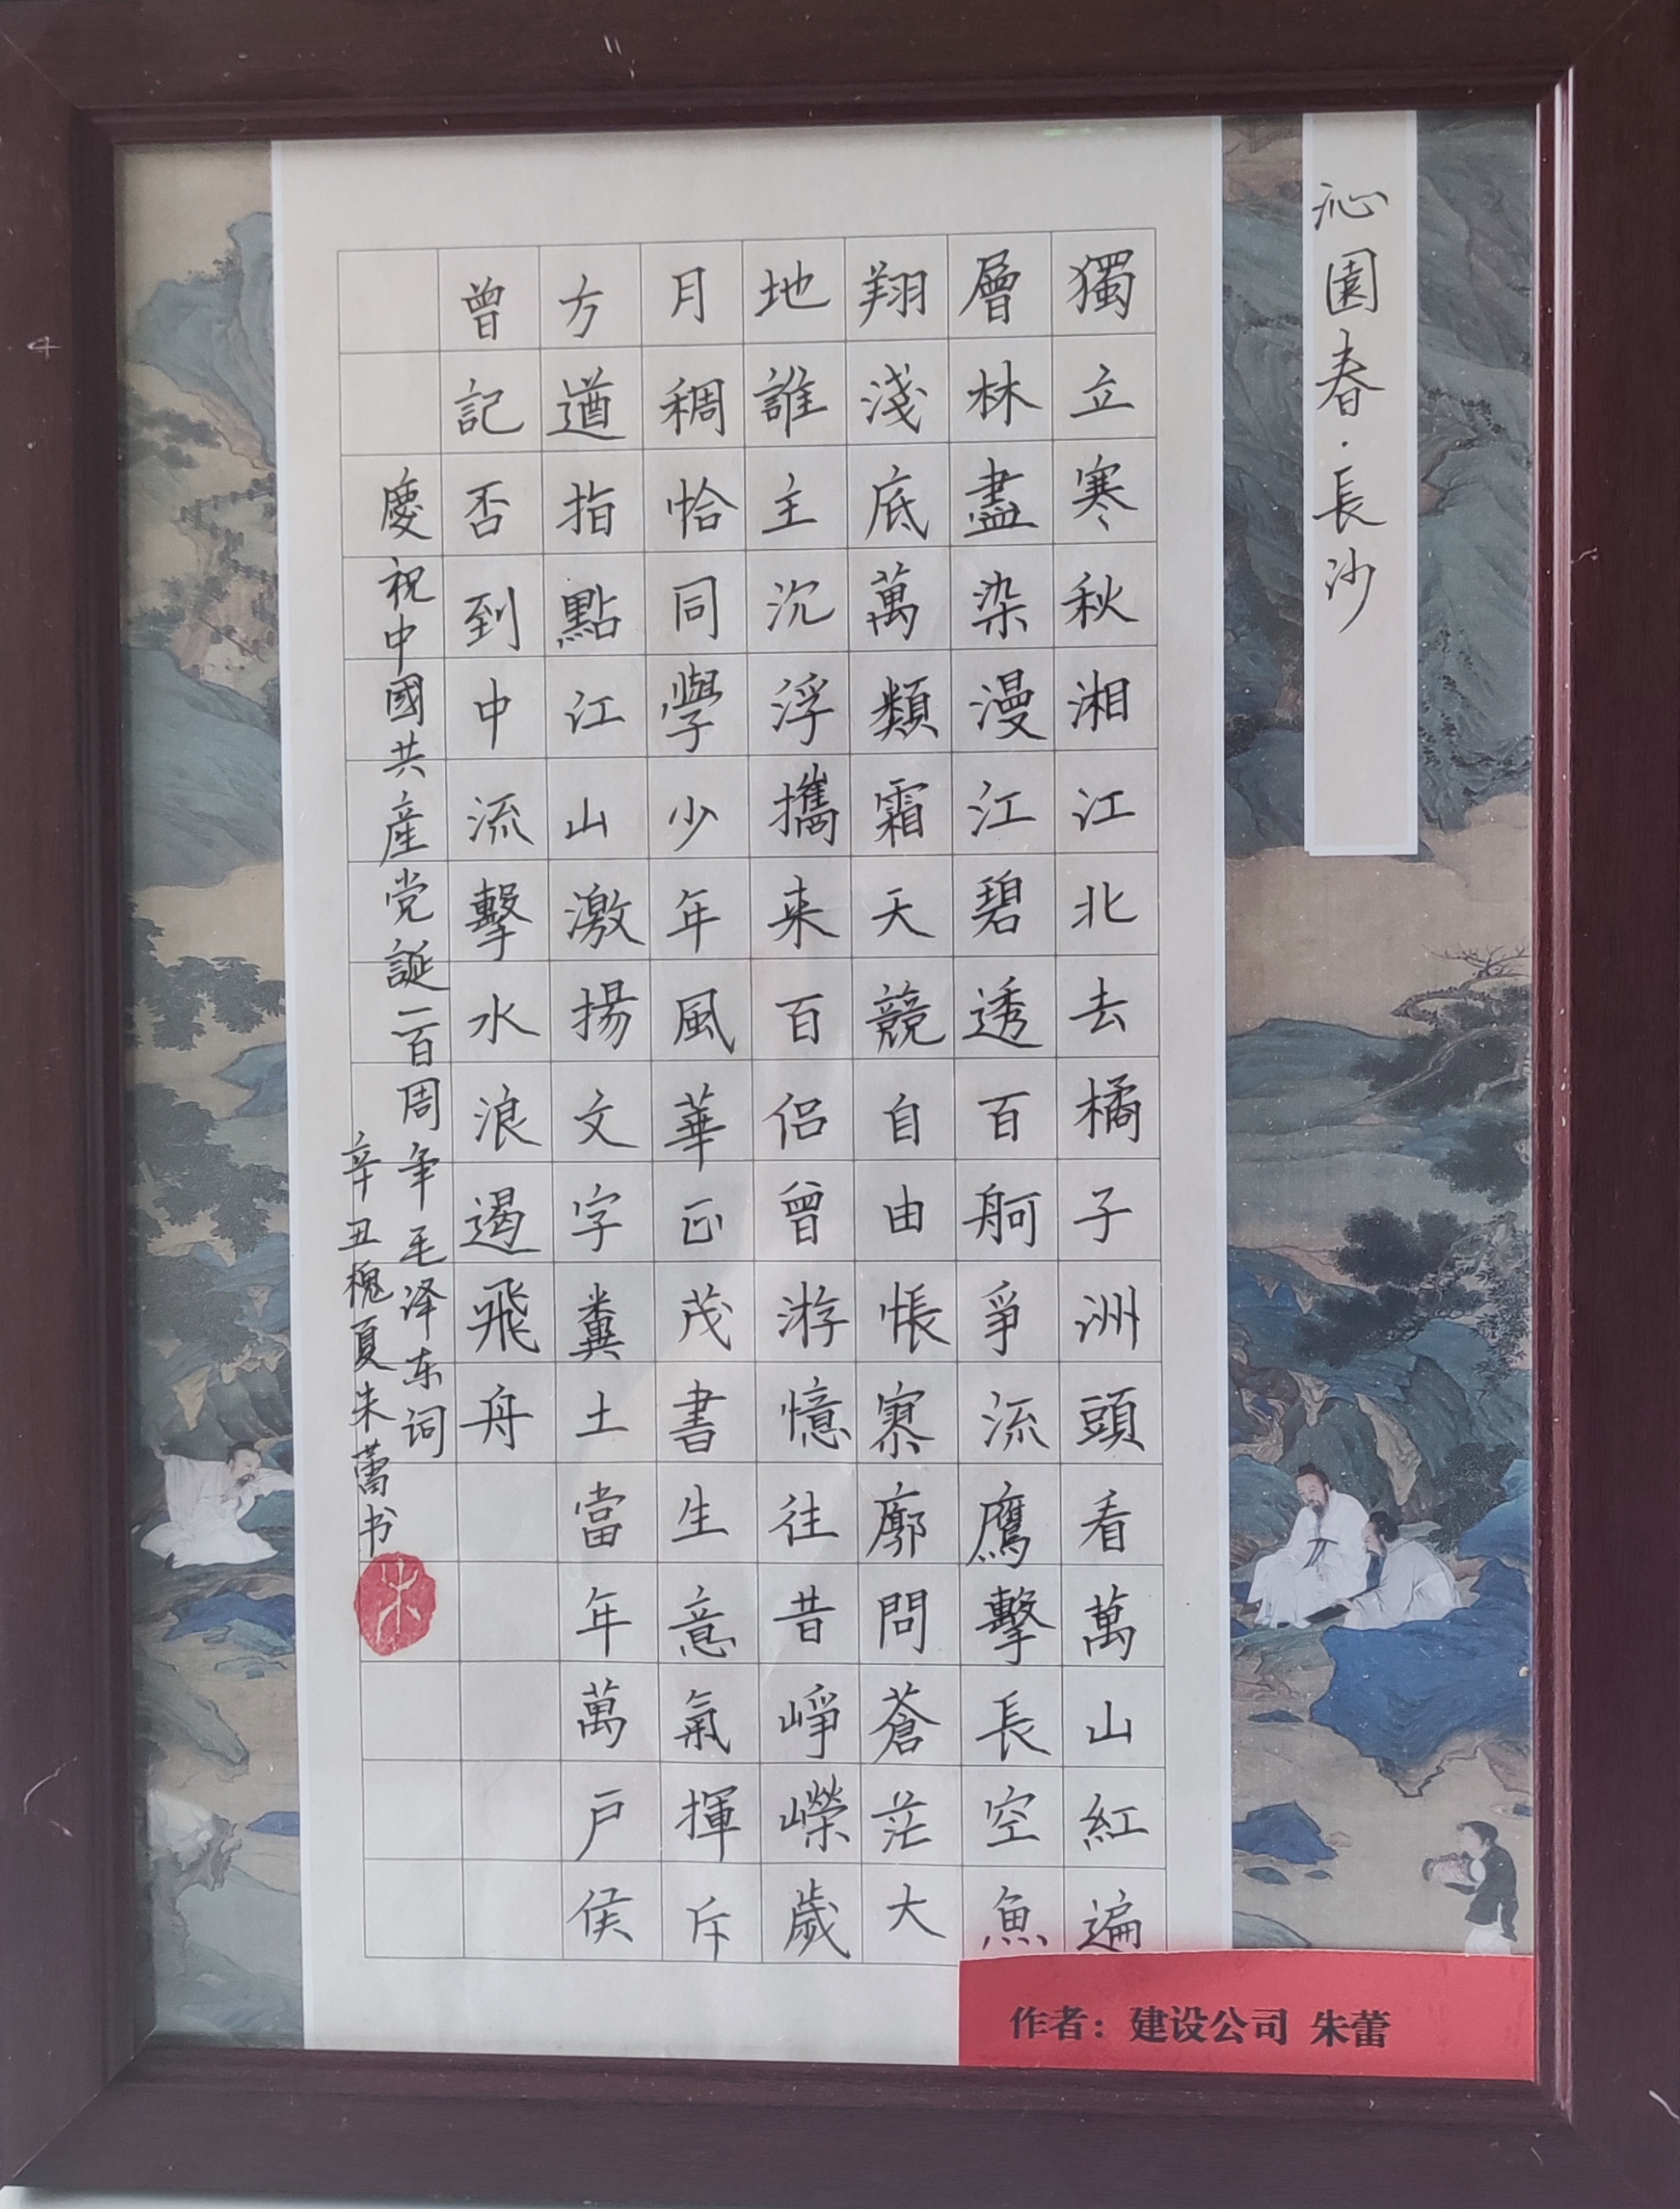 沁園春·長沙
獨立寒秋湘江北去橘子洲頭看萬山紅遍
層林盡染漫江碧透百舸爭流鷹擊長空魚
翔淺底萬類霜天競自由悵寥廓問蒼茫大
地誰主沉浮攜来百侣曾游憶往昔崢嶸歲
月稠恰同學少年風華正茂書生意氣揮斥
方遒指點江山激揚文字糞土當年萬户侯
曾記否到中流擊水浪遏飛舟
慶祝中國共産党誕一百周年毛泽东词
辛丑槐夏朱蕾书
朱
作者：建设公司 朱蕾